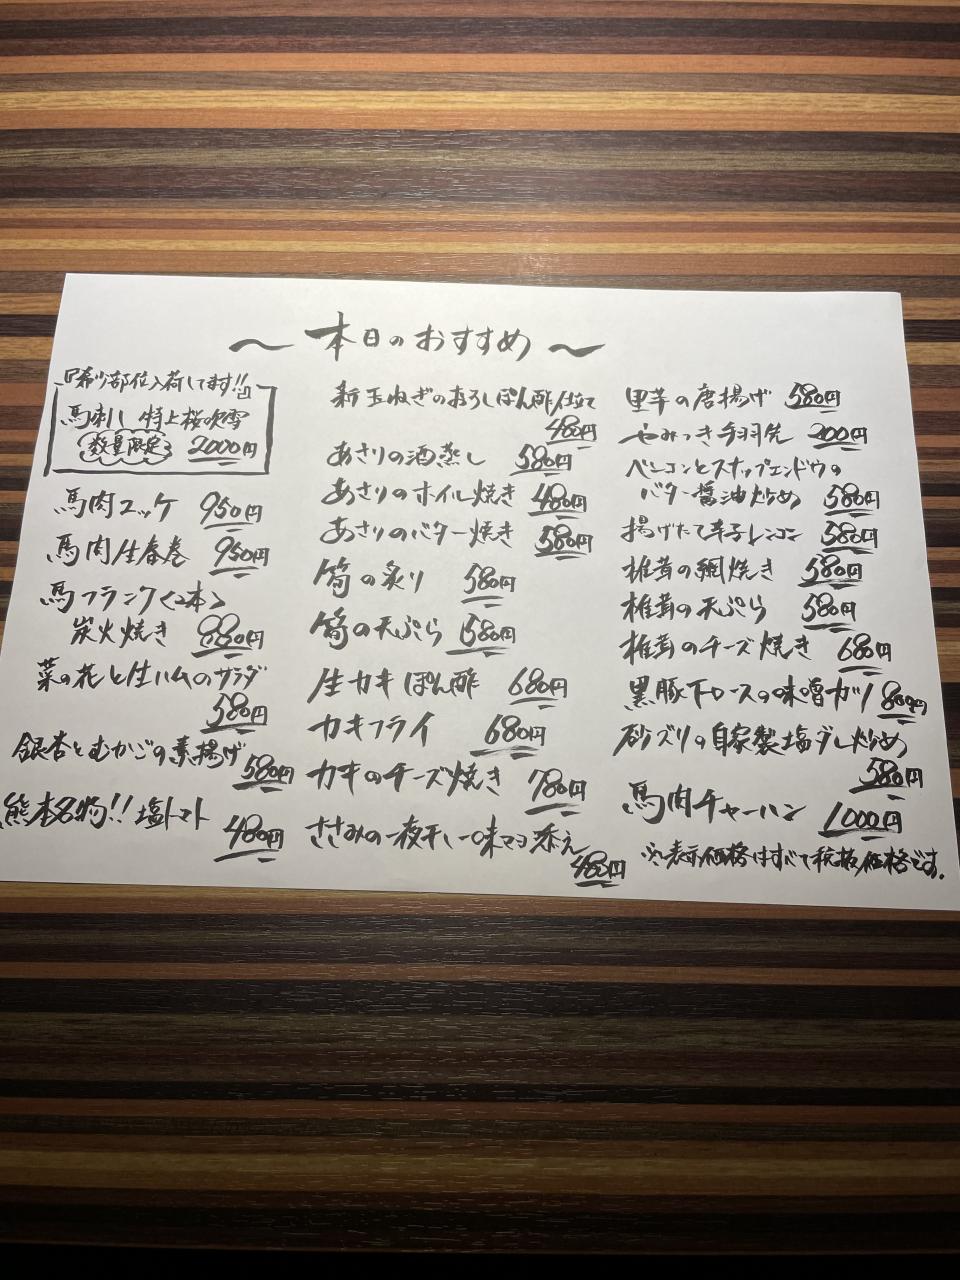 〜 本日のおすすめ 〜
『希少部位入荷してます!!』
馬刺し 特上桜吹雪
数量限定 2000円
馬肉ユッケ 950円
馬肉生春巻 950円
馬フランク<2本>
炭火焼き 880円
菜の花と生ハムのサラダ
580円
銀杏とむかごの素揚げ
580円
熊本名物!! 塩トマト
480円
新玉ねぎのおろしぽん酢仕立て
480円
あさりの酒蒸し 580円
あさりのホイル焼き 480円
あさりのバター焼き 580円
筍の炙り 580円
筍の天ぷら 580円
生カキぽん酢 680円
カキフライ 680円
カキのチーズ焼き 780円
ささみの一夜干し 一味マヨ添え
480円
里芋の唐揚げ 580円
やみつき手羽先 200円
ベーコンとスナップエンドウの
バター醤油炒め 580円
揚げたて辛子レンコン 580円
椎茸の網焼き 580円
椎茸の天ぷら 580円
椎茸のチーズ焼き 680円
黒豚下ロースの味噌カツ 800円
砂ズリの自家製塩ダレ炒め
580円
馬肉チャーハン 1000円
※表示価格はすべて税抜価格です.